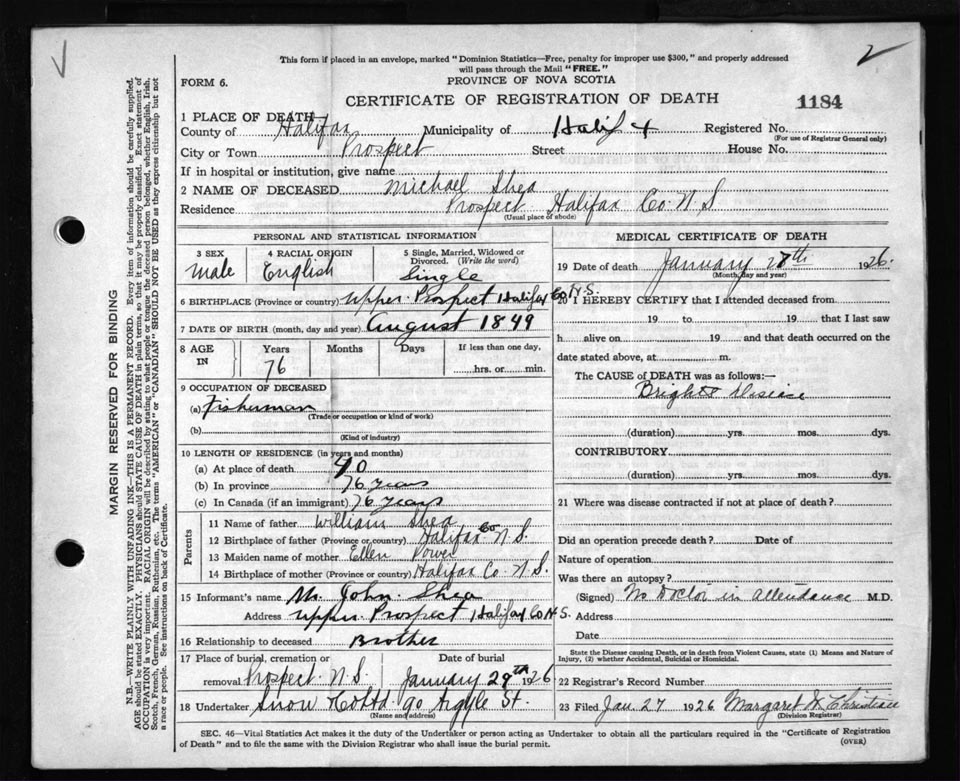 This form if placed in an envelope, marked "Dominion Statistics—Free, penalty for improper use $300," and properly addressed
will pass through the Mail "FREE."
FORM 6.
PROVINCE OF NOVA SCOTIA
CERTIFICATE OF REGISTRATION OF DEATH
1184
1 PLACE OF DEATH
County of Halifax Municipality of Halifax Registered No.
(For use of Registrar General only)
City or Town Prospect Street House No.
If in hospital or institution, give name
2 NAME OF DECEASED Michael Shea
Residence Prospect Halifax Co N S
(Usual place of abode)
PERSONAL AND STATISTICAL INFORMATION
3 SEX 4 RACIAL ORIGIN 5 Single, Married, Widowed or
Divorced. (Write the word)
Male English Single
6 BIRTHPLACE (Province or country) Upper Prospect Halifax Co N.S.
7 DATE OF BIRTH (month, day and year) August 1849
8 AGE IN Years Months Days If less than one day,
76 hrs. or min.
9 OCCUPATION OF DECEASED
(a) Fisherman
(Trade or occupation or kind of work)
(b)
(Kind of industry)
10 LENGTH OF RESIDENCE (in years and months)
(a) At place of death 40
(b) In province 76 years
(c) In Canada (if an immigrant) 76 years
Parents
11 Name of father William Shea
12 Birthplace of father (Province or country) Halifax Co N.S.
13 Maiden name of mother Ellen Power
14 Birthplace of mother (Province or country) Halifax Co N.S.
15 Informant's name Mr John Shea
Address Upper Prospect Halifax Co N S.
16 Relationship to deceased Brother
17 Place of burial, cremation or Date of burial
removal Prospect N.S. January 29th 1926
18 Undertaker Snow & Co Ltd 90 Argyle St.
(Name and address)
MEDICAL CERTIFICATE OF DEATH
19 Date of death January th 1926.
(Month, day and year)
20 I HEREBY CERTIFY that I attended deceased from
19 to 19 that I last saw
h alive on 19 and that death occurred on the
date stated above, at m.
The CAUSE of DEATH was as follows:—
Brights Disease
(duration) yrs. mos. dys.
CONTRIBUTORY
(duration) yrs. mos. dys.
21 Where was disease contracted if not at place of death?
Did an operation precede death? Date of
Nature of operation
Was there an autopsy?
(Signed) No Doctor in attendance M.D.
Address
Date
State the Disease causing Death, or in death from Violent Causes, state (1) Means and Nature of
Injury, (2) whether Accidental, Suicidal or Homicidal.
22 Registrar's Record Number
23 Filed Jan. 27 1926 Margaret Christian
(Division Registrar)
SEC. 46—Vital Statistics Act makes it the duty of the Undertaker or person acting as Undertaker to obtain all the particulars required in the "Certificate of Registration
of Death" and to file the same with the Division Registrar who shall issue the burial permit.
(OVER)
MARGIN RESERVED FOR BINDING
N.B.—WRITE PLAINLY WITH UNFADING INK—THIS IS A PERMANENT RECORD. Every item of information should be carefully supplied.
AGE should be stated EXACTLY. PHYSICIANS should STATE CAUSE OF DEATH in plain terms, so that it may be properly classified. Exact statement of
OCCUPATION is very important. RACIAL ORIGIN will be described by stating to what people or tongue the deceased person belonged, whether English, Irish,
Scotch, French, German, Russian, Ruthenian, etc. The terms "AMERICAN" or "CANADIAN" SHOULD NOT BE USED as they express citizenship but not
a race or people. See instructions on back of Certificate.